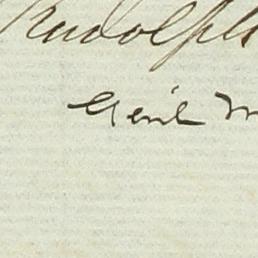 Rudolph
Genl M